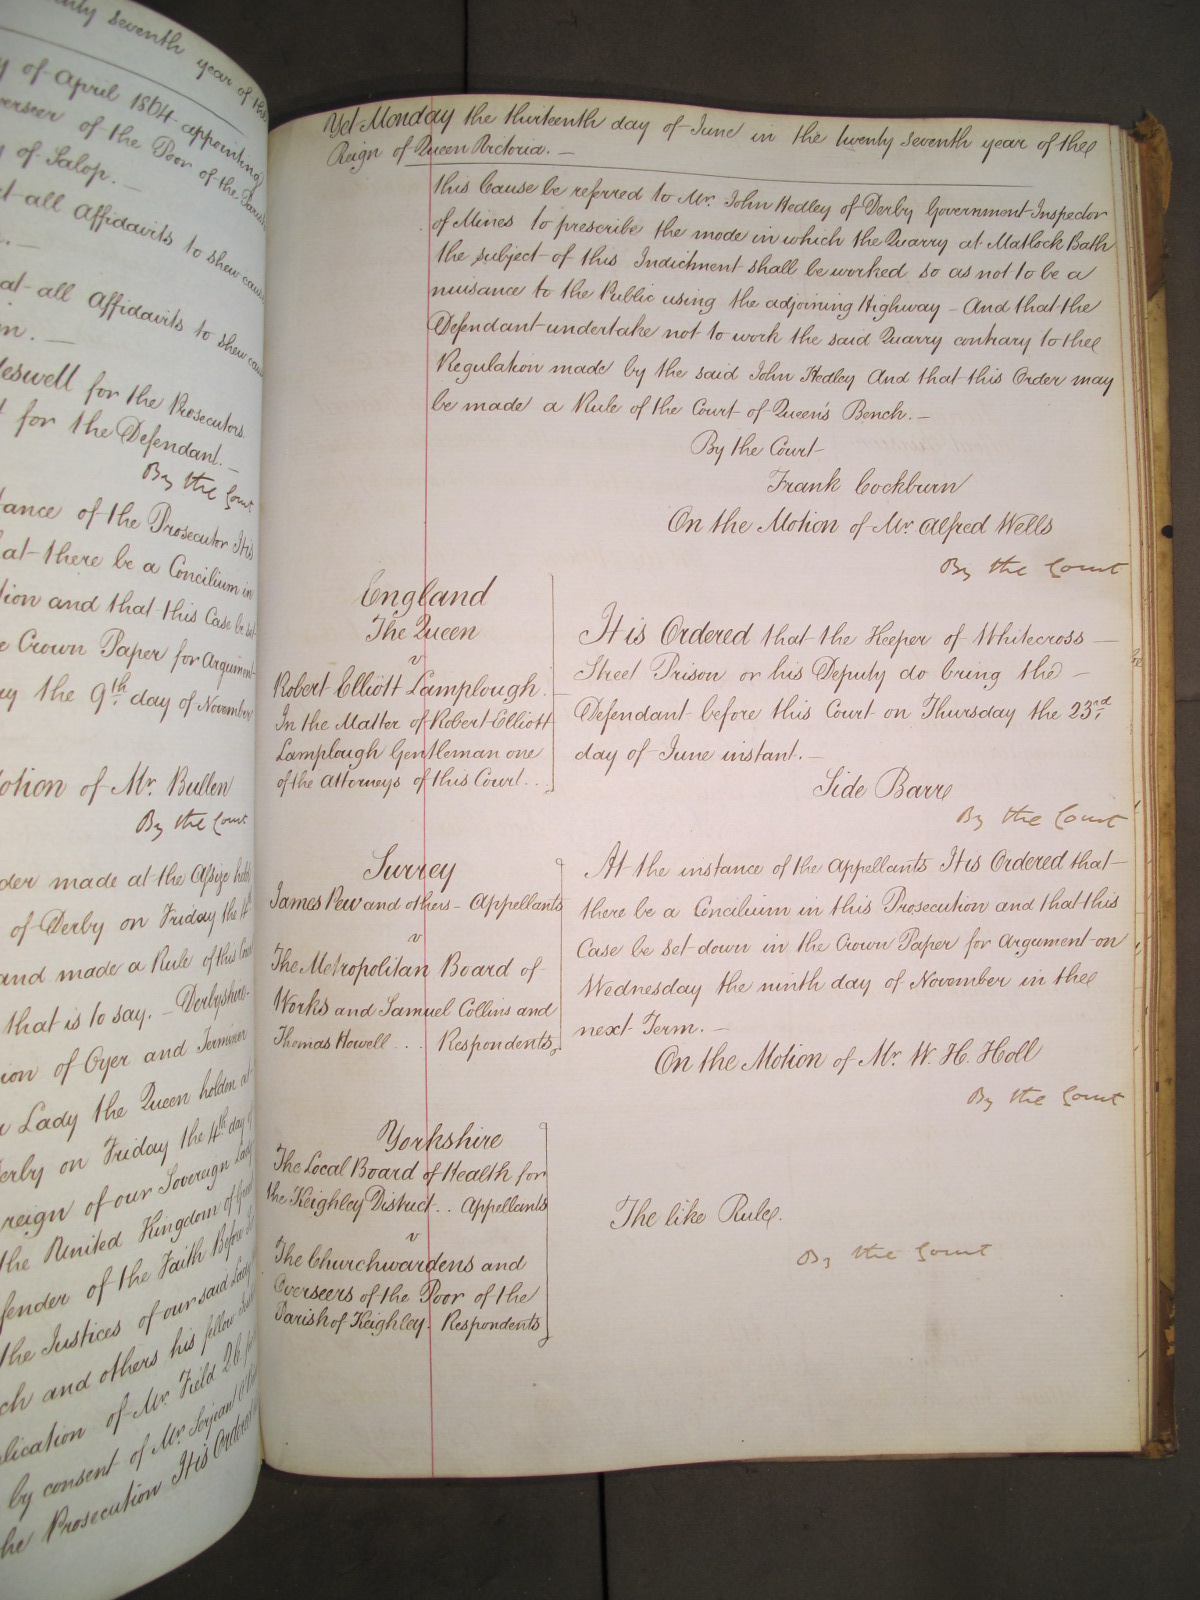 enty seventh year of the
y of April 1864 appointing
verseer of the Poor of the Parish
y of Salop. —
t all Affidavits to shew cause
at all Affidavits to shew
n. —
leswell for the Prosecutors.
for the Defendant. —
By the Court
tance of the Prosecutor It is
at there be a Concilium in
tion and that this Case be set
e Crown Paper for Argument
ay the 9th day of November
otion of Mr. Bullen
By the Court
der made at the Assize held
of Derby on Friday the 4th
and made a Rule of this Court
that is to say. — Derbyshire
ion of Oyer and Terminer
r Lady the Queen holden at
erby on Friday the 4th day of
reign of our Sovereign Lady
the United Kingdom of Great
fender of the Faith Before
the Justices of our said Lady
ch and others his fellow
plication of Mr. Field
by consent of Mr. Serjeant
he Prosecution It is Ordered
Yet Monday the thirteenth day of June in the twenty seventh year of the
Reign of Queen Victoria. —
this Cause be referred to Mr. John Hedley of Derby Government Inspector
of Mines to prescribe the mode in which the Quarry at Matlock Bath
the subject of this Indictment shall be worked so as not to be a
nuisance to the Public using the adjoining Highway - And that the
Defendant undertake not to work the said Quarry contrary to the
Regulation made by the said John Hedley And that this Order may
be made a Rule of the Court of Queen's Bench. —
By the Court
Frank Cockburn
On the Motion of Mr. Alfred Wells
By the Court
England
The Queen
v
Robert Elliott Lamplough.
In the Matter of Robert Elliott
Lamplough Gentleman one
of the Attorneys of this Court...
It is Ordered that the Keeper of Whitecross —
Street Prison or his Deputy do bring the —
Defendant before this Court on Thursday the 23rd
day of June instant. —
Side Barr
By the Court
Surrey
James Pew and others - Appellants
v
The Metropolitan Board of
Works and Samuel Collins and
Thomas Howell ... Respondents
At the instance of the Appellants It is Ordered that
there be a Concilium in this Prosecution and that this
Case be set down in the Crown Paper for Argument on
Wednesday the ninth day of November in the
next Term. —
On the Motion of Mr. W. H. Holl
By the Court
Yorkshire
The Local Board of Health for
the Keighley District .. Appellants
v
The Churchwardens and
Overseers of the Poor of the
Parish of Keighley. Respondents
The like Rule.
By the Court